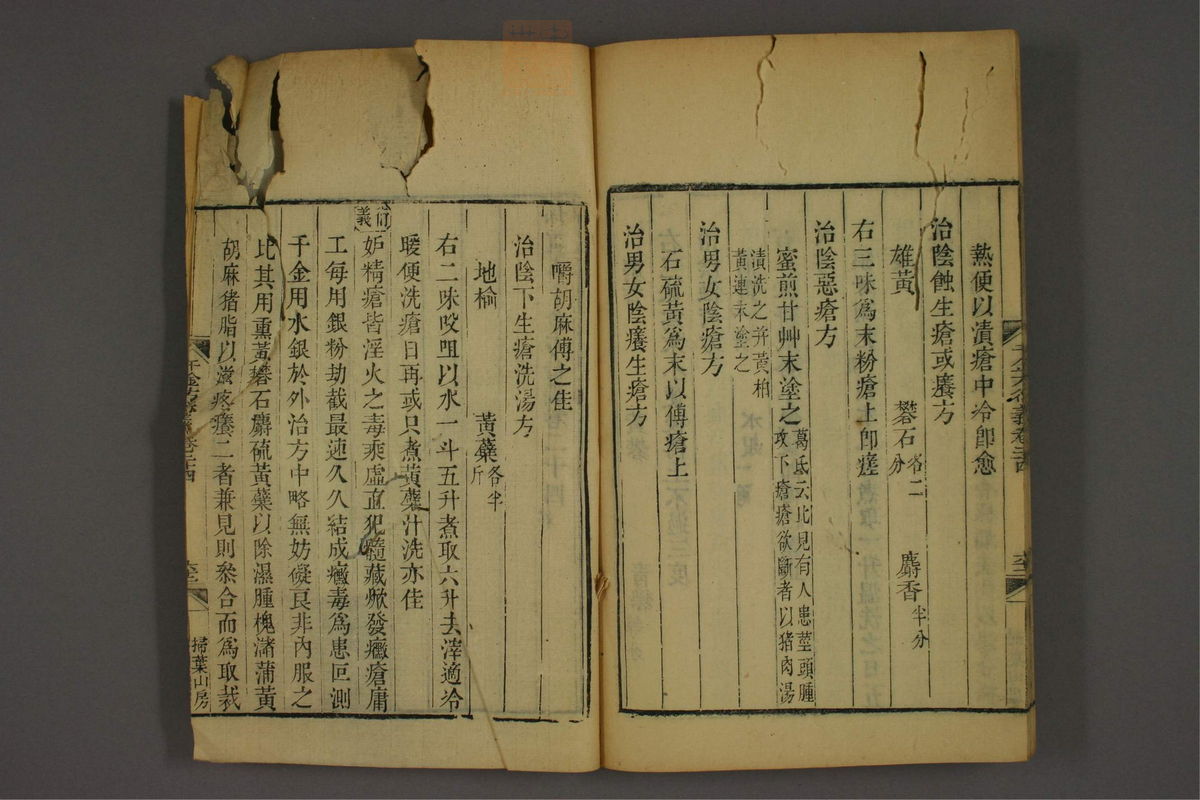 熱便以漬瘡中冷卽愈
治陰蝕生瘡或癢方
雄黃 礬石各二分 麝香半分
右三味爲末粉瘡上卽瘥
治陰惡瘡方
蜜煎甘艸末塗之葛氏云比見有人患莖頭腫
攻下瘡瘡欲斷者以猪肉湯
漬洗之幷黃柏
黃連末塗之
治男女陰瘡方
石硫黃爲末以傅瘡上
治男女陰癢生瘡方
嚼胡麻傅之佳
治陰下生瘡洗湯方
地榆 黃蘗各半斤
右二味㕮咀以水一斗五升煮取六升去滓適冷
暖便洗瘡日再或只煮黃蘗汁洗亦佳
義
妒精瘡皆淫火之毒乘虛直犯髓藏焮發癥瘡庸
工每用銀粉劫截最速久久結成癥毒爲患叵測
千金用水銀於外治方中略無妨礙良非內服之
比其用熏黃礬石麝硫黃蘗以除濕腫槐瀦蒲黃
胡麻猪脂以滋疼癢二者兼見則叅合而爲取裁
掃葉山房